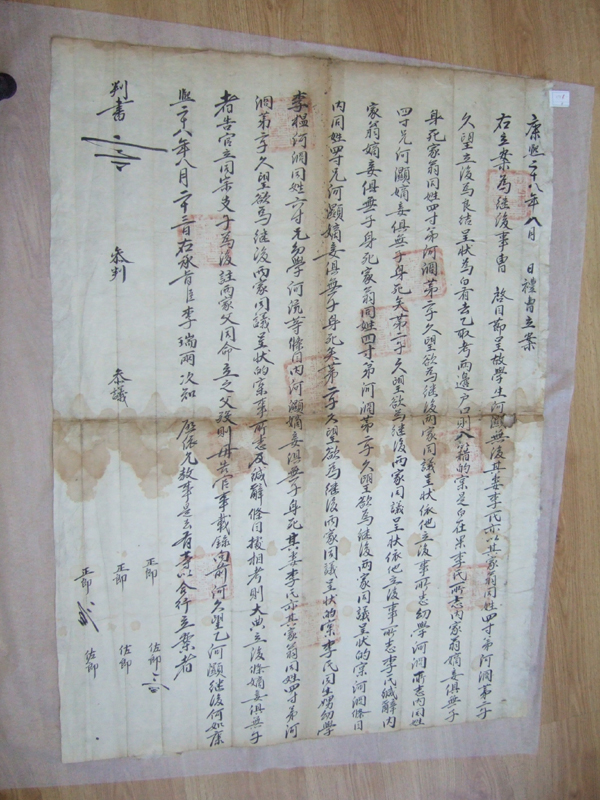 康熙二十八年八月 日禮曹立案
右立案爲繼後事曹 啓目節呈故學生河灝無後其妻李氏亦以其家翁同姓四寸弟河澗第二子
久望立後爲良結呈狀爲白有去乙取考兩邊戶口則 的實是白在果李氏所志內家翁嫡妾俱無子
身死家翁同姓四寸弟河澗第二子久望欲爲繼後兩家同議呈狀依他立後事所志幼學河澗所志內同姓
四寸兄河灝嫡妾俱無子身死矣第二子久望欲爲繼後兩家同議呈狀依他立後事所志李氏緘辭內
家翁嫡妾俱無子身死家翁同姓四寸弟河澗第二子久望欲爲繼後兩家同議呈狀的實河澗條目
內同姓四寸兄河灝嫡妾俱無子身死矣第二子久望欲爲繼後兩家同議呈狀的實李氏同生娚幼學
李榲河澗同姓六寸兄幼學河 等條目內河灝嫡妾俱無子身死其妻李氏亦其家翁同姓四寸弟河
澗第二子久望欲爲繼後兩家同議呈狀的實事所志及緘辭條目據相考則大典立後條嫡妾俱無子
者告官立同宗支子爲後註兩家父同命立之父歿則母告官事載錄向前河久望乙河灝繼後何如康
熙二十八年八月二十三日右承旨臣李瑞雨次知 啓依允敎事是去有等以合行立案者
判書
參判
參議
正郎
正郎
正郎
佐郎
佐郎
佐郎